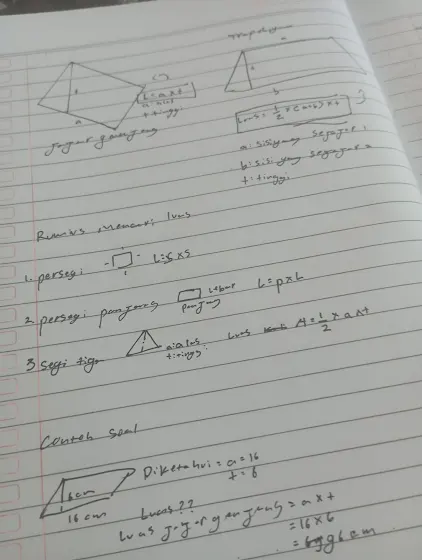 trapesium
a
t
b
L = a x t
a: alas
t: tinggi
t
a
jajar genjang
Luas = 1/2 x (a+b) x t
a: sisi yang sejajar 1
b: sisi yang sejajar 2
t: tinggi
Rumus mencari luas
1. persegi L = S x S
2. persegi panjang Lebar panjang L = p x L
3 segi tiga a: alas t: tinggi Luas = 1/2 x a x t
Contoh soal
6 cm
16 cm
Diketahui = a = 16
t = 6
Luas??
Luas jajar genjang = a x t
= 16 x 6